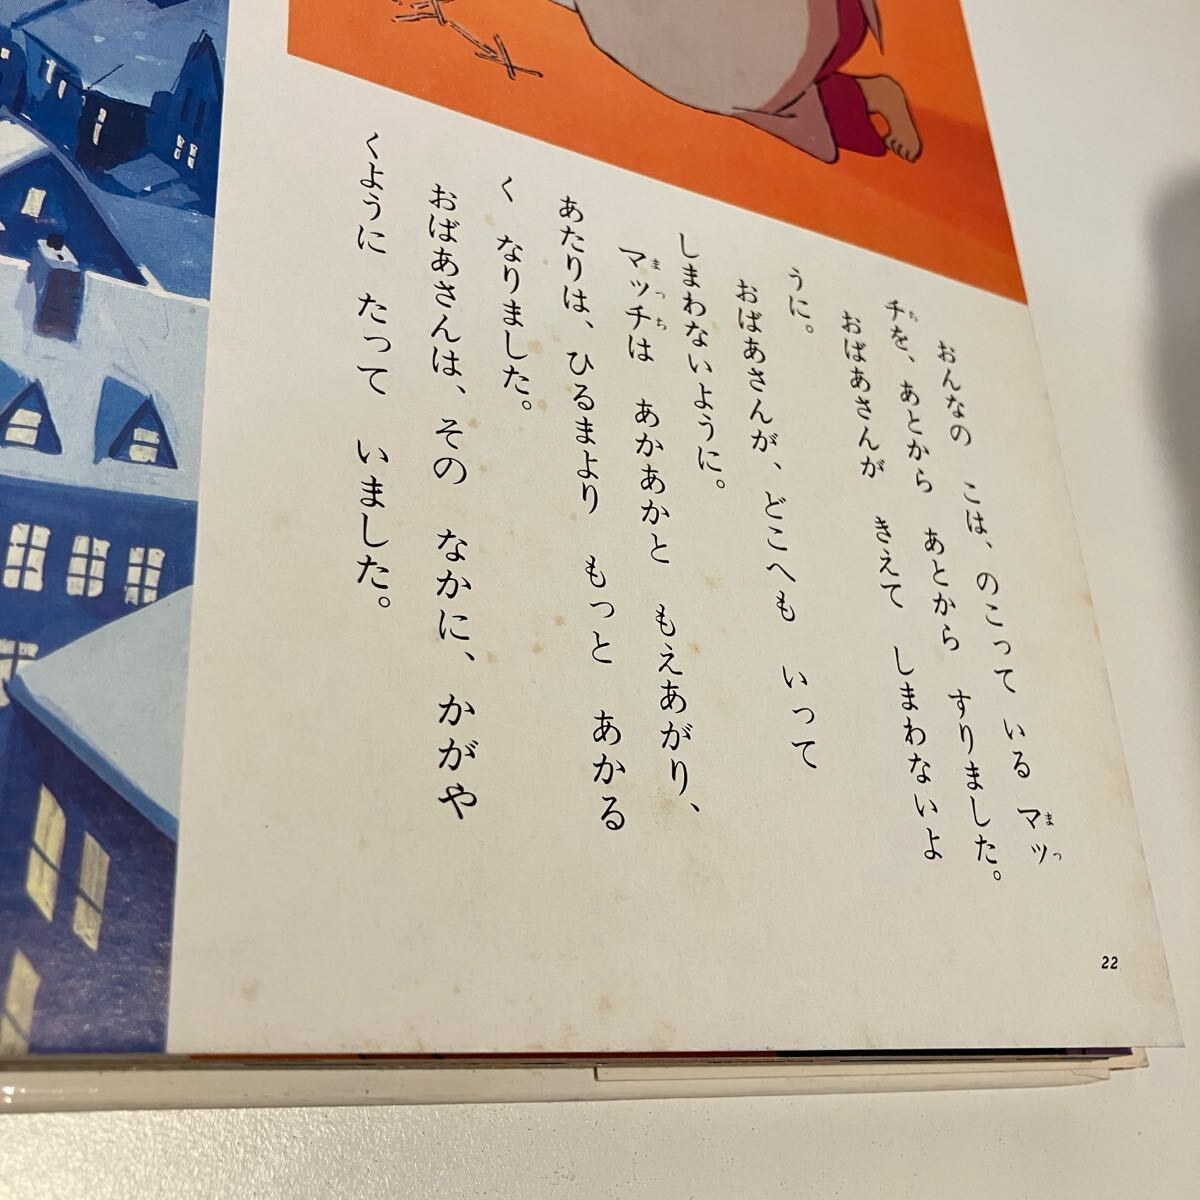 おんなの こは、のこって いる マッ
まっ
チを、あとから あとから すりました。
ち
おばあさんが きえて しまわないよ
うに。
おばあさんが、どこへも いって
しまわないように。
マッチは あかあかと もえあがり、
まっち
あたりは、ひるまより もっと あかる
く なりました。
おばあさんは、その なかに、かがや
くように たって いました。
22